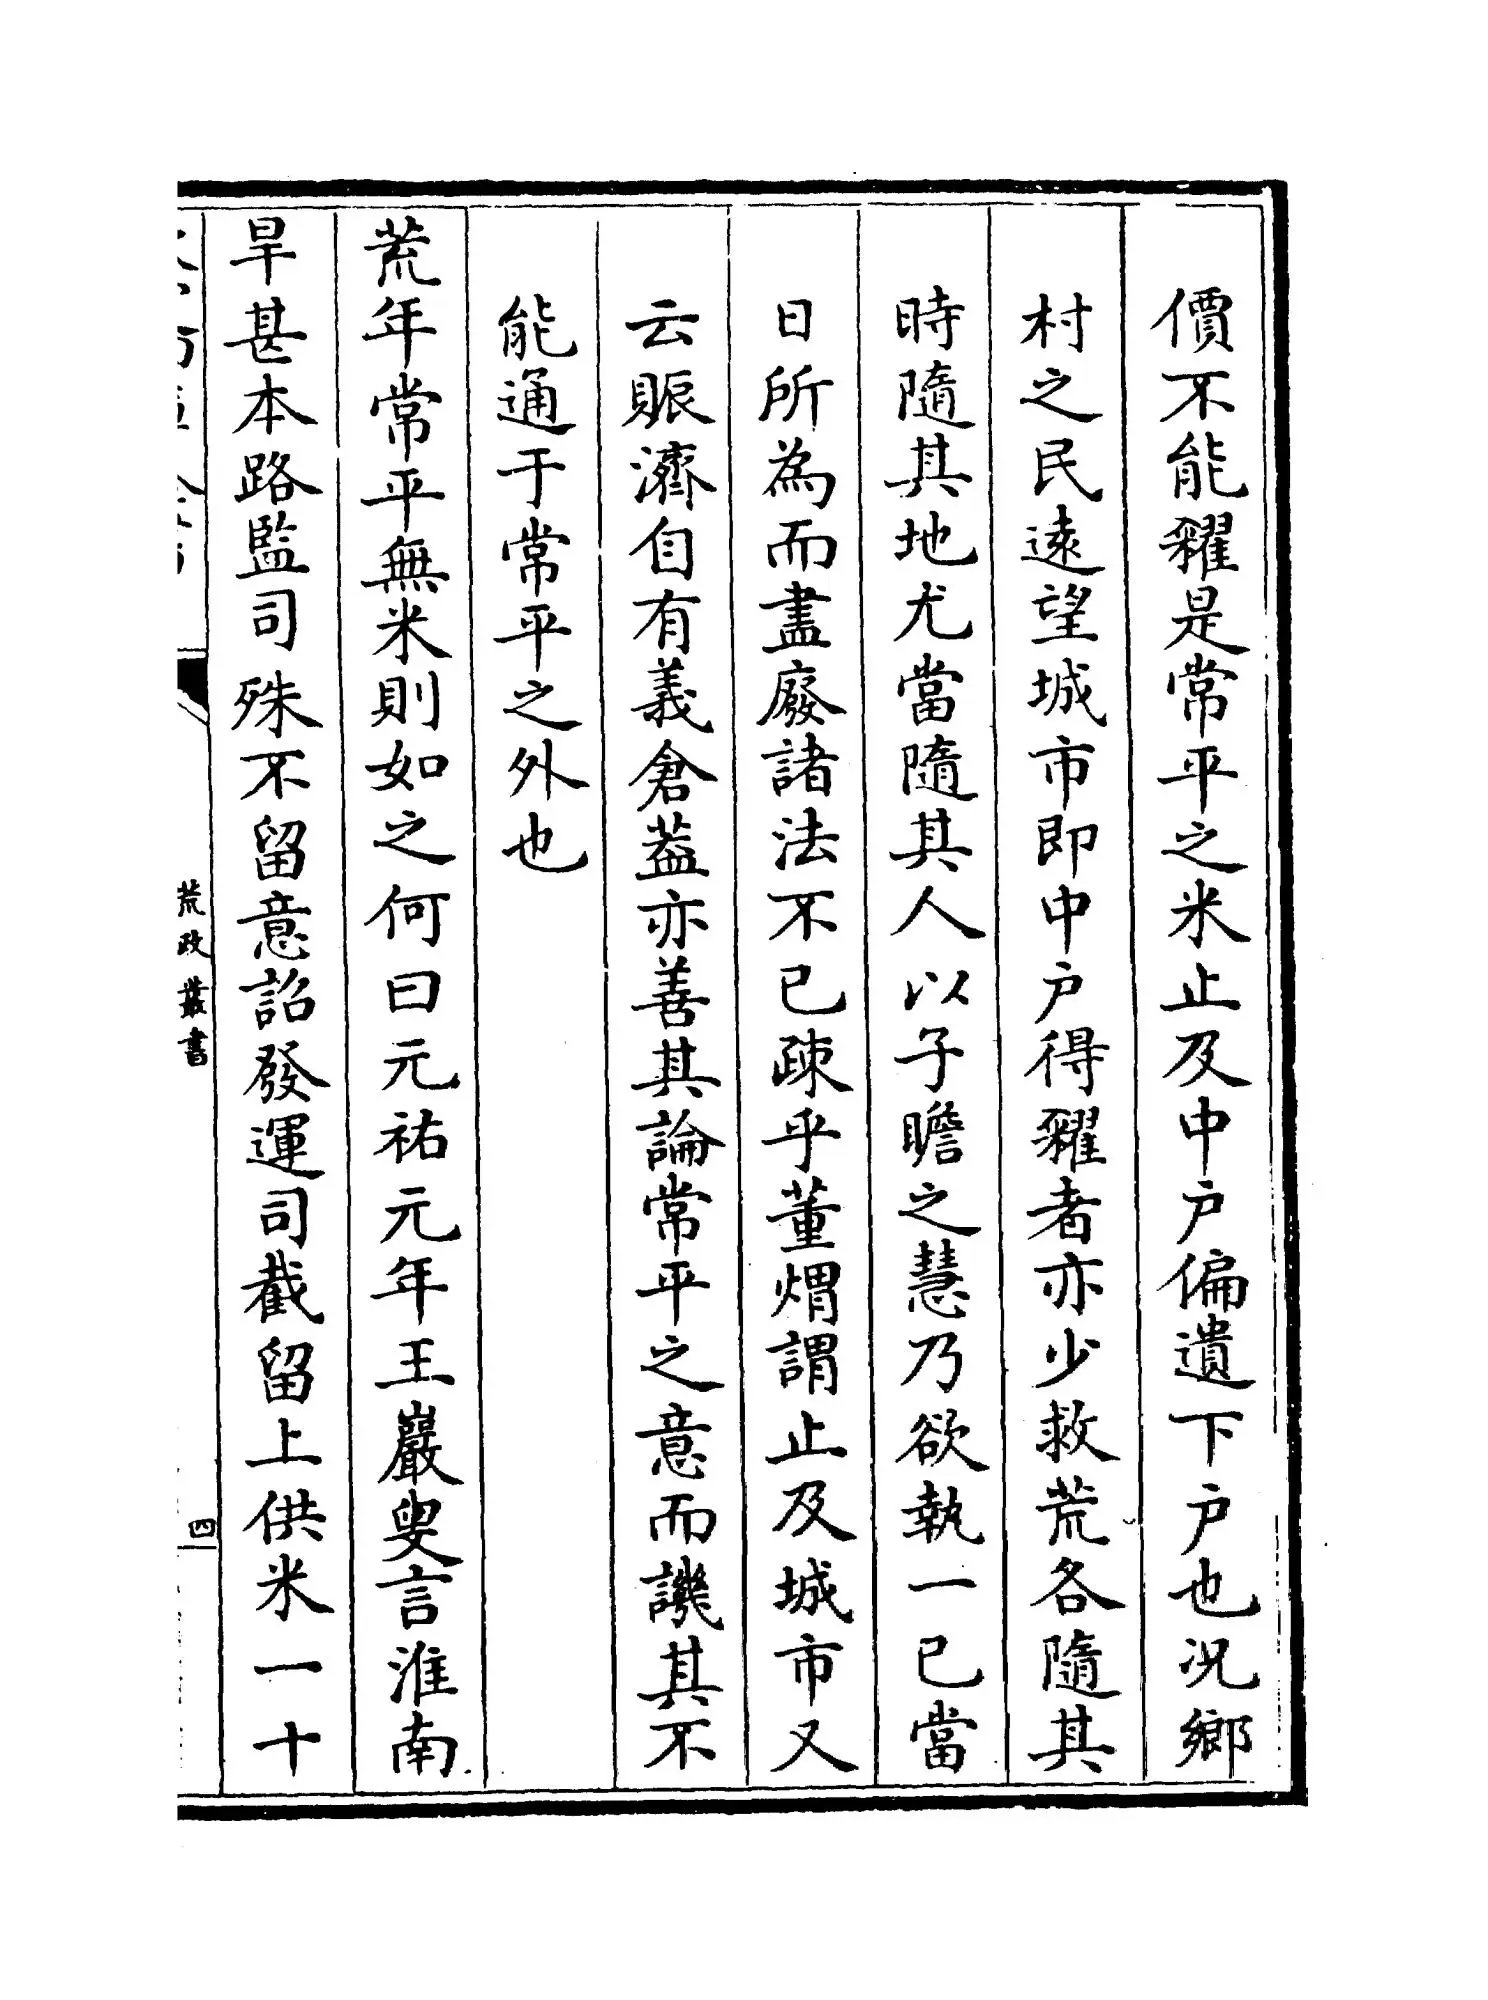 價不能糴是常平之米止及中户偏遺下户也况鄉
村之民遠望城市即中户得糴者亦少救荒各隨其
時隨其地尤當隨其人以子瞻之慧乃欲執一已當
日所為而盡廢諸法不已疎乎董煟謂止及城市又
云賑濟自有義倉葢亦善其論常平之意而譏其不
能通于常平之外也
荒年常平無米則如之何曰元祐元年王巖叟言淮南
旱甚本路監司殊不留意詔發運司截留上供米一十
荒政叢書
四